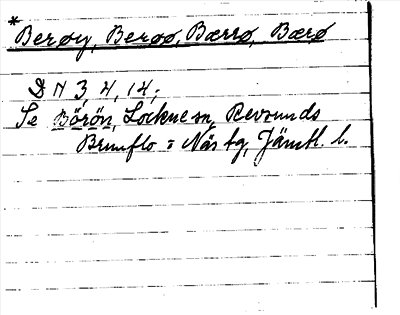 *Berøy, Berøø, Bærrø, Bærø
D N 3, 4, 14;
Se Börön, Lockne sn, Revsunds
Brunflo o Näs tg, Jämtl. l.